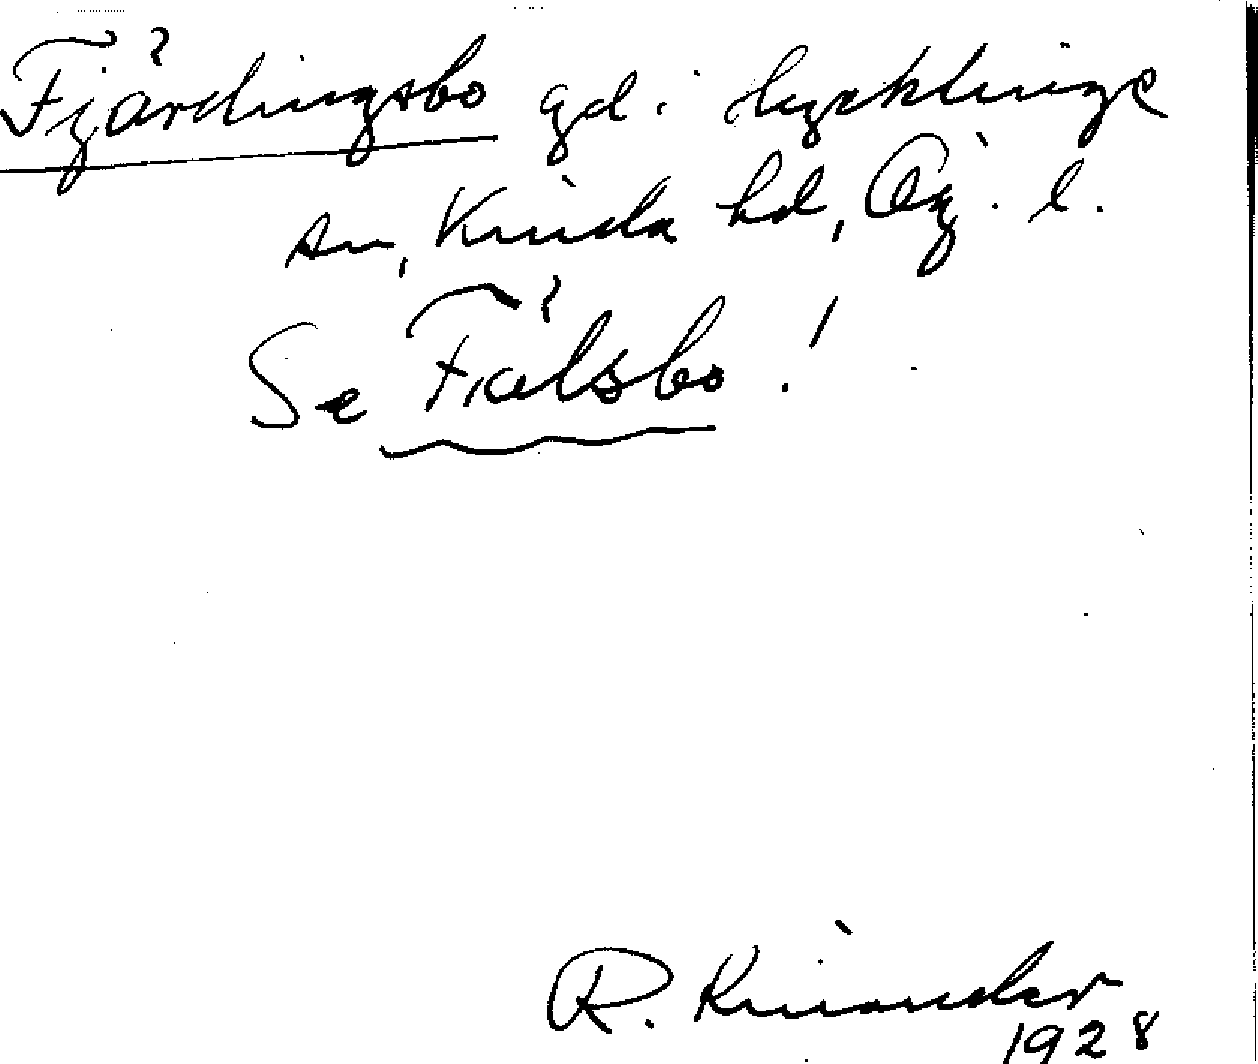 Fjärdingsbo gd i Hycklinge
sn, Kinda hd, Ög. l.
Se Fiälsbo!
R. Kinander
1928